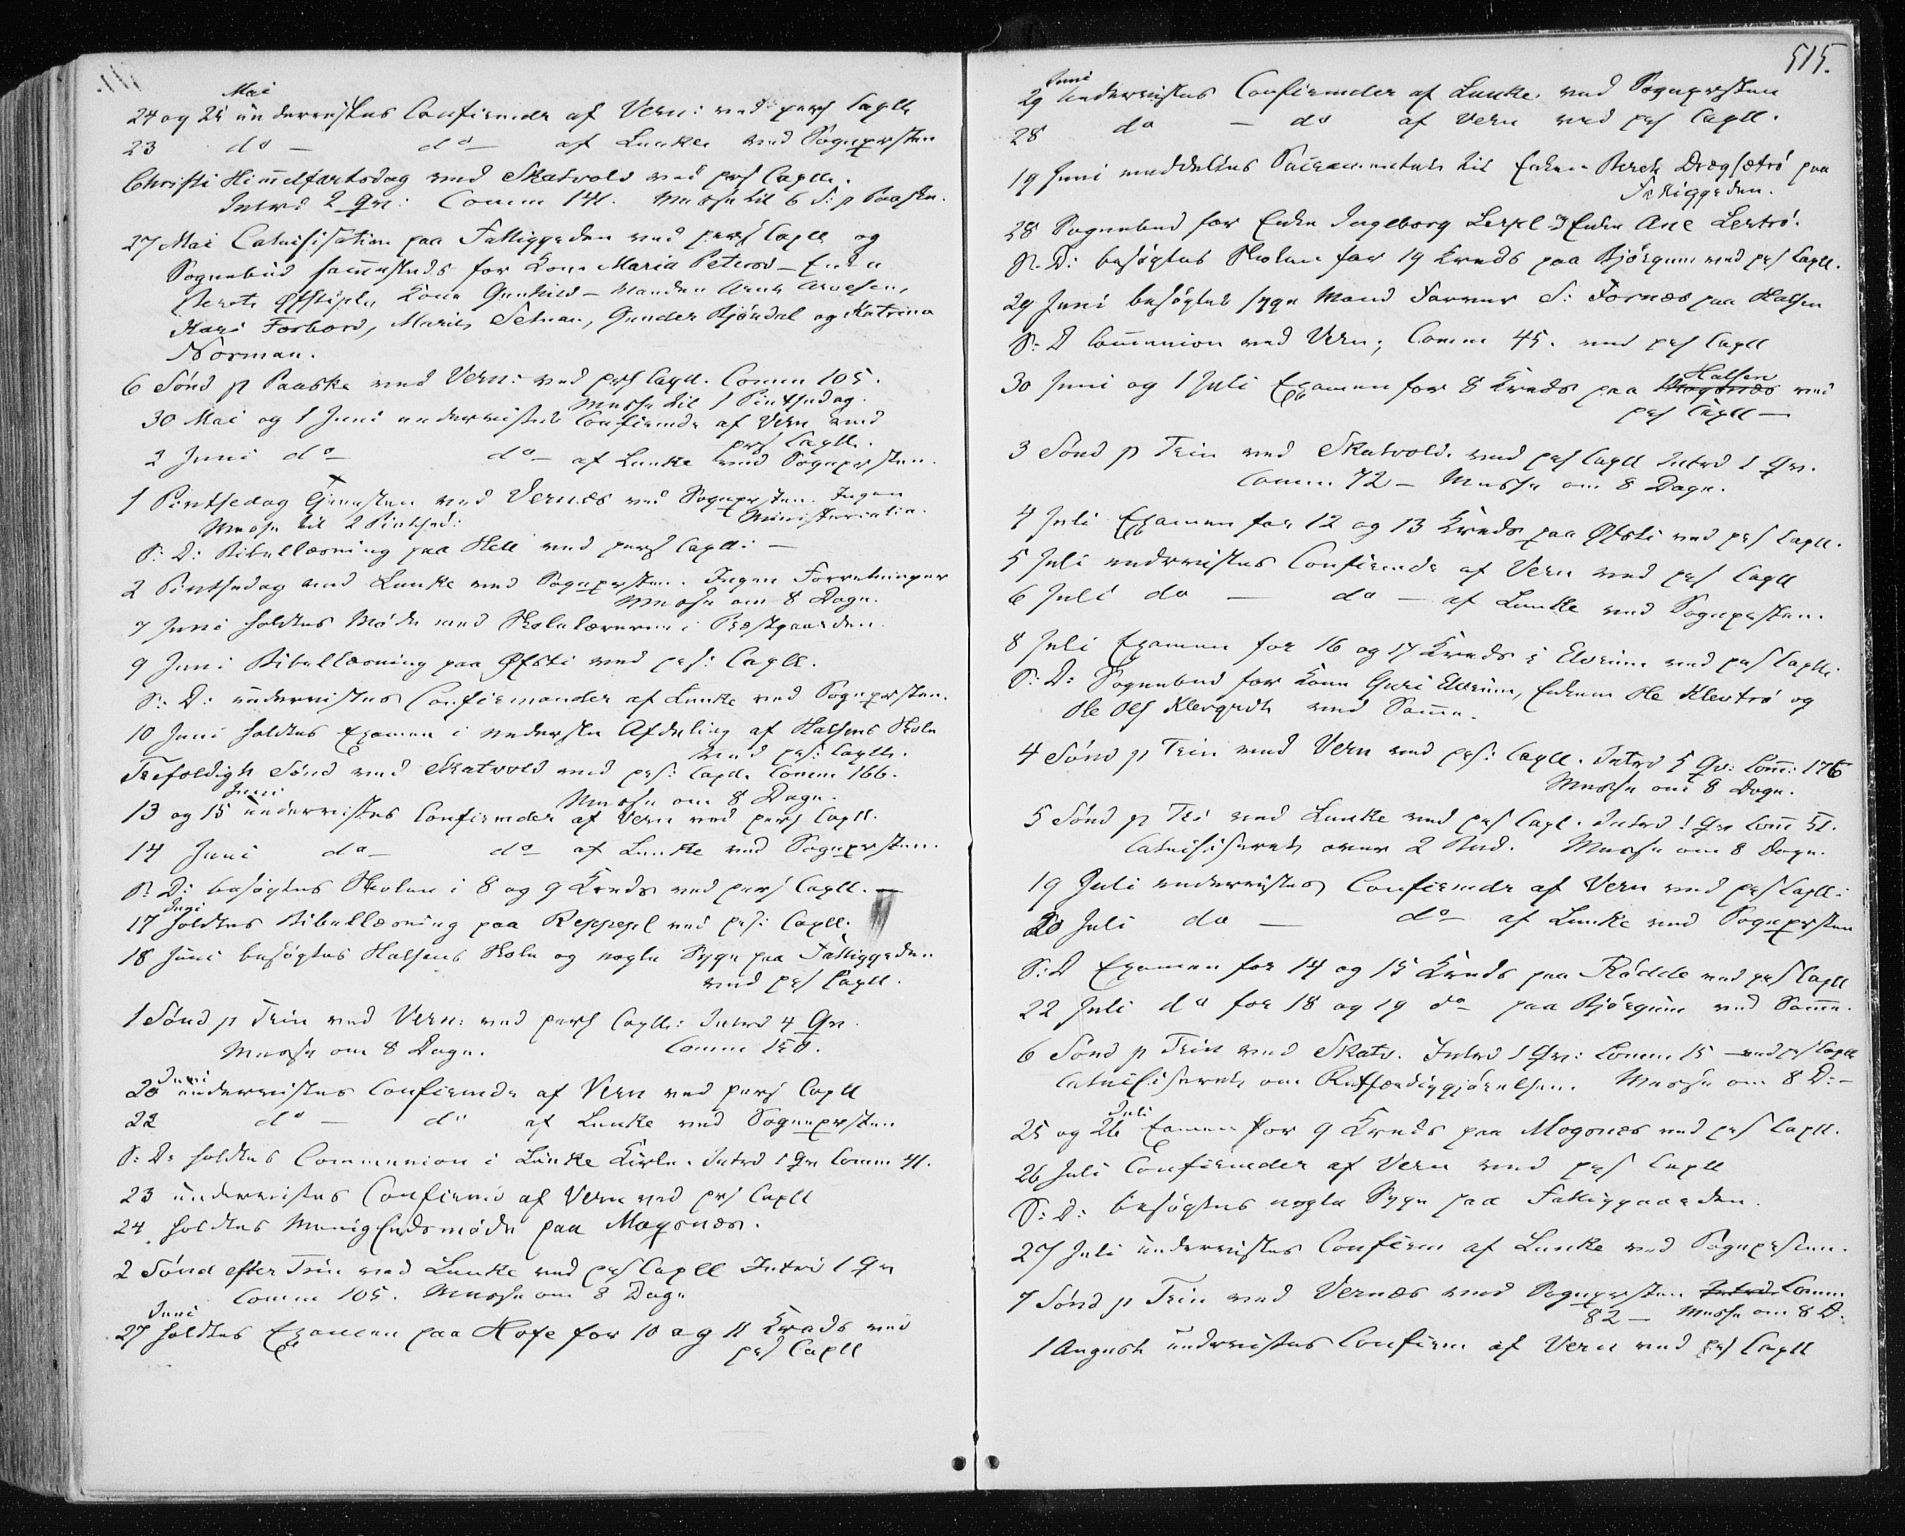 Mai
24 og 25 undervistes Confirmde af Vern: ved pers Capll
23 do — do — af Lanke ved Sognepresten
Christi Himmelfartsdag ved Skatvold ved pers Capll.
Introd 2 Qv: Comm 141. Messe til 6 S: p Paaske.
27 Mai Catechisation paa Fattiggaarden ved pers Capll og
Sognebud sammesteds for Kone Maria Peters — Enke
Berete Kone Gunhild — Manden Arnt Arvesen,
Kari Forbord, Marit, Gunder Kjöndal og Katrina
Norman.
6 Sönd p Paaske ved Vern: ved pers Capll. Comm 105.
Messe til 1 Pintsedag.
30 Mai og 1 Juni undervistes Confirmde af Vern ved
pers Capll.
2 Juni do do — af Lanke ved Sognepresten.
1 Pintsedag Tjenesten ved Vernæs ved Sognepresten. Ingen
Messe til 2 Pintsed: Ministerialia.
S: D: Bibellæsning paa Hell ved pers Capll: —
2 Pintsedag ved Lanke ved Sognepresten. Ingen Forretninger
Messe om 8 Dage.
7 Juni holdtes Möde med Skolelærerne i Præstgaarden.
9 Juni Bibellæsning paa Øfsti ved pers: Capll.
S: D: undervistes Confirmander af Lanke ved Sognepresten.
10 Juni holdtes Examen i nederste Afdeling af Halsens Skole
ved pers: Capll.
Trefoldigh Sönd ved Skatvold ved pers: Capl. Comm 166.
Juni Messe om 8 Dage.
13 og 15 undervistes Confirmder af Vern ved pers Capll.
14 Juni do — do af Lanke ved Sognepresten.
S: D: besögtes Skolen i 8 og 9 Kreds ved pers Capll. —
Juni
17 holdtes Bibellæsning paa Reppe ved pers: Capll.
18 Juni besögtes Halsens Skole og nogle Syge paa Fattiggaarden
ved pers Capll.
1 Sönd p Trin ved Vern: ved pers Capll: Introd 4 Qv.
Messe om 8 Dage. Comm 150.
Juni
20 undervistes Confirmde af Vern ved pers Capll
22 do — do af Lanke ved Sognepresten
S: D: holdtes Communion i Lanke Kirke. Introd 1 Qv Comm 41.
23 undervistes Confirmd af Vern ved pers Capll
24. holdtes Menighedsmöde paa Mogsnæs.
2 Sönd efter Trin ved Lanke ved pers Capll Introd 1 Qv
Comm 105. Messe om 8 Dage
Juni
27 holdtes Examen paa Hofe for 10 og 11 Kreds ved
pers Capll
515.
Juni
29 undervistes Confirmder af Lanke ved Sognepresten
28 do — do af Vern ved pers Capll.
19 Juni meddeltes Sacramentet til Enken Beret Drægsetrö paa
Fattiggaarden.
28 Sognebud for Enke Ingeborg og Enke Ane Lertrö.
S: D: besögtes Skolen for 19 Kreds paa Bjørgum ved pers Capll.
29 Juni besögtes syge Mand Farver S: Fornæs paa Halsen
S: D Communion ved Vern; Comm 45. ved pers Capll
Halsen
30 Juni og 1 Juli Examen for 8 Kreds paa Mogsnæs ved
pers Capll —
3 Sönd p Trin ved Skatvold. ved pers Capll Introd 1 Qv.
Comm 72 — Messe om 8 Dage.
4 Juli Examen for 12 og 13 Kreds paa Øfsti ved pers Capll.
5 Juli undervistes Confirmde af Vern ved pers Capll
6 Juli do — do — af Lanke ved Sognepresten.
8 Juli Examen for 16 og 17 Kreds i Elvrum ved pers Capll.
S: D: Sognebud for Kone Guri Elvrum, Enkem Ole Klevtrö og
Ole Ols ved Samme.
4 Sönd p Trin ved Vern ved pers: Capll. Introd 5 Qv: Com: 176
Messe om 8 Dage.
5 Sönd p Tri ved Lanke ved pers Capl. Introd 1 Qv Com 51.
Catechiserets over 2 Bud. Messe om 8 Dage.
19 Juli undervistes Confirmde af Vern ved pers Capll:
20 Juli do — do — af Lanke ved Sognepresten
S: D Examen for 14 og 15 Kreds paa Rödde ved pers Capll
22 Juli do for 18 og 19 do — paa Bjørgum ved Samme.
6 Sönd p Trin ved Skatv. Introd 1 Qv: Comm 15 — ved pers Capll
Catechiserets om Retfærdiggjörelsen. Messe om 8 D: —
Juli
25 og 26 Examen for 9 Kreds paa Mogsnæs ved pers Capll.
26 Juli Confirmder af Vern ved pers Capll
S: D: besögtes nogle Syge paa Fattiggaarden.
27 Juli undervistes Confirm af Lanke ved Sognepresten.
7 Sönd p Trin ved Vernæs ved Sognepresten Introd Comm
82 — Messe om 8 D:
1 August undervistes Confirm af Vern ved pers Capll